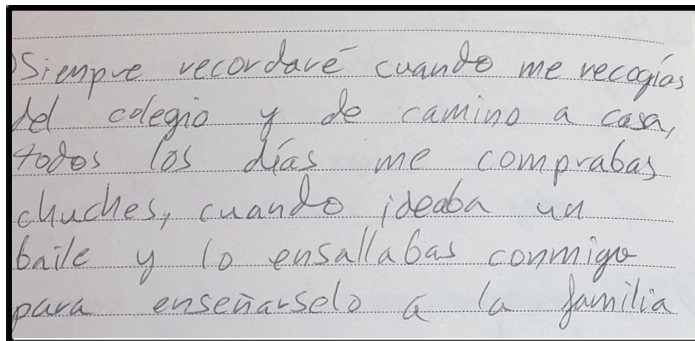 Siempre recordaré cuando me recogías
del colegio y de camino a casa,
todos los días me comprabas
chuches, cuando ideaba un
baile y lo ensallabas conmigo
para enseñarselo a la familia